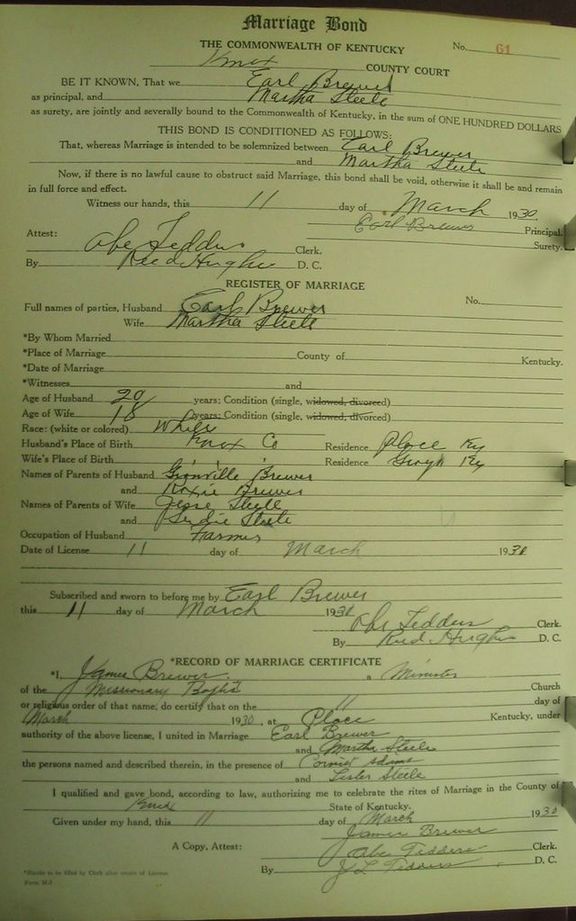 Marriage Bond
THE COMMONWEALTH OF KENTUCKY No. 61
Knox COUNTY COURT
BE IT KNOWN, That we Earl Brewer
as principal, and Martha Steele
as surety, are jointly and severally bound to the Commonwealth of Kentucky, in the sum of ONE HUNDRED DOLLARS
THIS BOND IS CONDITIONED AS FOLLOWS:
That, whereas Marriage is intended to be solemnized between Earl Brewer
and Martha Steele
Now, if there is no lawful cause to obstruct said Marriage, this bond shall be void, otherwise it shall be and remain
in full force and effect.
Witness our hands, this 11 day of March 1930
Earl Brewer Principal.
Attest: Surety.
Abe Teddus Clerk.
By Reed Hughes D. C.
REGISTER OF MARRIAGE
Full names of parties, Husband Earl Brewer No.
Wife Martha Steele
*By Whom Married
*Place of Marriage County of Kentucky.
*Date of Marriage
*Witnesses and
Age of Husband 20 years; Condition (single, widowed, divorced)
Age of Wife 18 years; Condition (single, widowed, divorced)
Race: (white or colored) White
Husband's Place of Birth Knox Co Residence Place Ky
Wife's Place of Birth " " Residence Ky
Names of Parents of Husband Granville Brewer
and Roxie Brewer
Names of Parents of Wife Jesse Steele
and Steele
Occupation of Husband Farmer
Date of License 11 day of March 1930
Subscribed and sworn to before me by Earl Brewer
this 11 day of March 1930
Abe Teddus Clerk.
By Reed Hughes D. C.
*RECORD OF MARRIAGE CERTIFICATE
*I, James Brewer a Minister
of the Missionary Baptist Church
or religious order of that name, do certify that on the 11 day of
March 1930, at Place Kentucky, under
authority of the above license, I united in Marriage Earl Brewer
and Martha Steele
the persons named and described therein, in the presence of Adams
and Lester Steele
I qualified and gave bond, according to law, authorizing me to celebrate the rites of Marriage in the County of
Knox State of Kentucky.
Given under my hand, this 11 day of March 1930
James Brewer
A Copy, Attest: Abe Teddus Clerk.
By J L Teddus D. C.
*Blanks to be filled by Clerk after return of License.
Form M-2